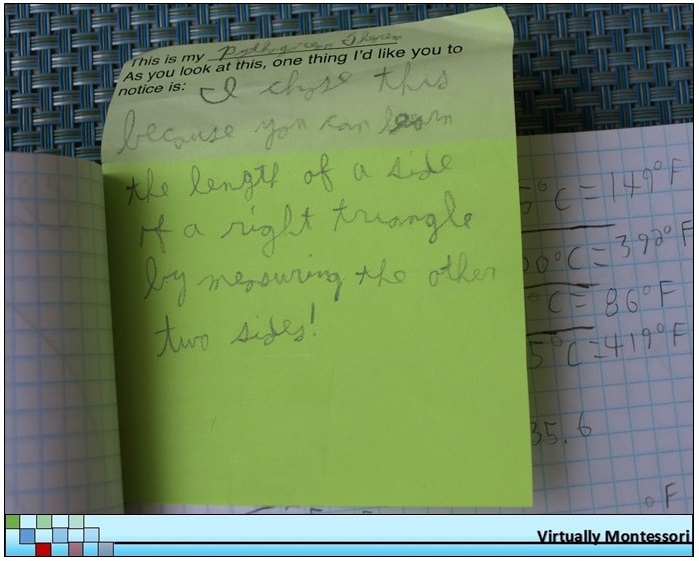 This is my Pythagorean Therem
As you look at this, one thing I'd like you to
notice is: I chose this
because you can learn
the length of a side
of a right triangle
by measuring the other
two sides!
5°C = 149°F
00°C = 392°F
°C = 86°F
5°C = 419°F
35.6
°F
Virtually Montessori